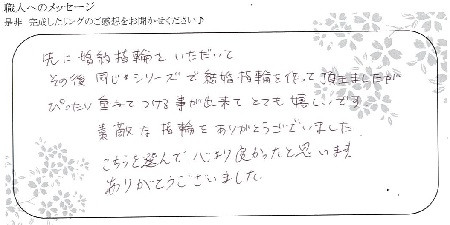 職人へのメッセージ
是非 完成したリングのご感想をお聞かせください♪
先に婚約指輪をいただいて
その後 同じシリーズで結婚指輪を作って頂きましたが
ぴったり重ねてつける事が出来て とても嬉しいです
素敵な指輪をありがとうございました
こちらを選んで 良かったと思います
ありがとうございました